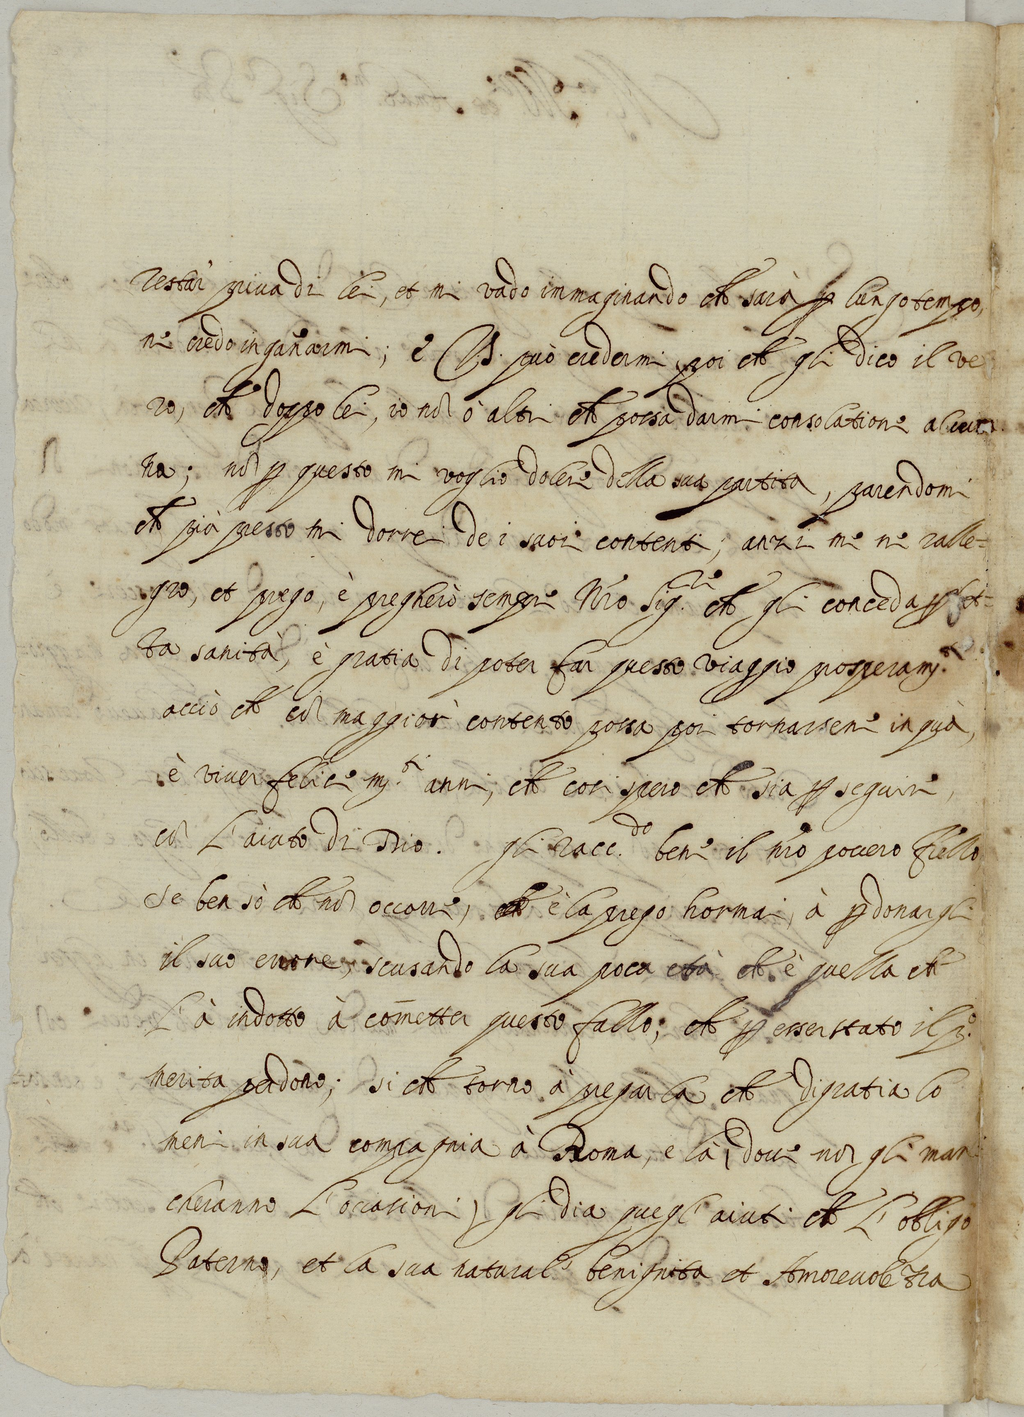 restar priva di lei, et mi vado immaginando ch sarà p lungo tempo,
ne credo ingañarmi; e V.S. può credermi, poi ch gli dico il ve
ro, ch doppo lei, io nō ò altri ch possa darmi consolatione alcu
na; nō p questo mi voglio dolere della sua partita, parendomi
ch più presto mi dorrei de i suoi contenti; anzi me ne ralle=
gro, et prego, è pregherò sempre Nro Sig.re ch gli conceda pfet=
ta sanità, è gratia di poter far questo viaggio prosperam.te
acciò ch cō maggior contento possa poi tornarsene in quà,
è viver felice m.ti anni, ch così spero ch sia p seguire,
cō l'aiuto di Dio. gli racc.do bene il nro povero frello
se ben sò ch nō occorre, ch è la prego hormai, à pdonargli
il suo errore, scusando la sua poca età ch è quella ch
l'à indotto à cōmetter questo fallo; ch p esser stato il p.o
merita perdono; si ch torno à pregarla ch di gratia lo
meni in sua compagnia à Roma, e là, dove nō gli man
cheranno l'ocasioni, gli dia quegl'aiuti ch l'obligo
Paterno, et la sua natural benignita et Amorevol tza